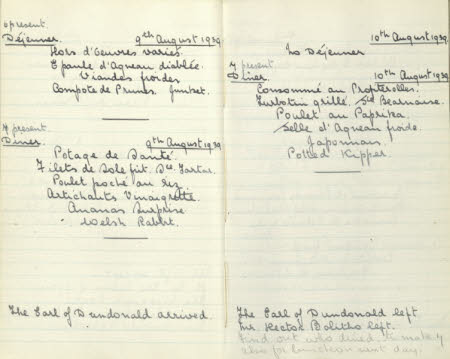 6 present
Déjeuner. 9th August 1939.
Hors d'Oeuvres variés.
Epaule d'Agneau diablée.
Viandes froides
Compote de Prunes. Junket.
7 present
Diner. 9th August 1939.
Potage de Santé.
Filets de Sole frit. Sce. Tartar.
Poulet poché au riz
Artichauts Vinaigrette.
Ananas Surprise
Welsh Rabbit.
The Earl of Dundonald arrived.
10th August 1939.
No Déjeuner
7 present
Diner. 10th August 1939.
Consommé au Profiterolles.
Turbotin grillé. Sce Bearnaise.
Poulet au Paprika.
Selle d'Agneau froide.
Japonnais.
Potted Kipper
The Earl of Dundonald left
Mr. Hector Bolitho left.
Find out who dined to make 7
also for luncheon next day.